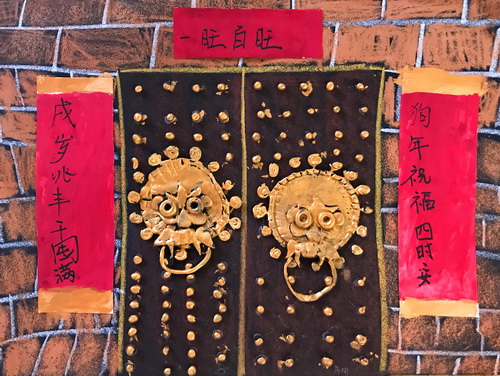 一旺百旺
戌岁兆丰千囤满
狗年祝福四时安